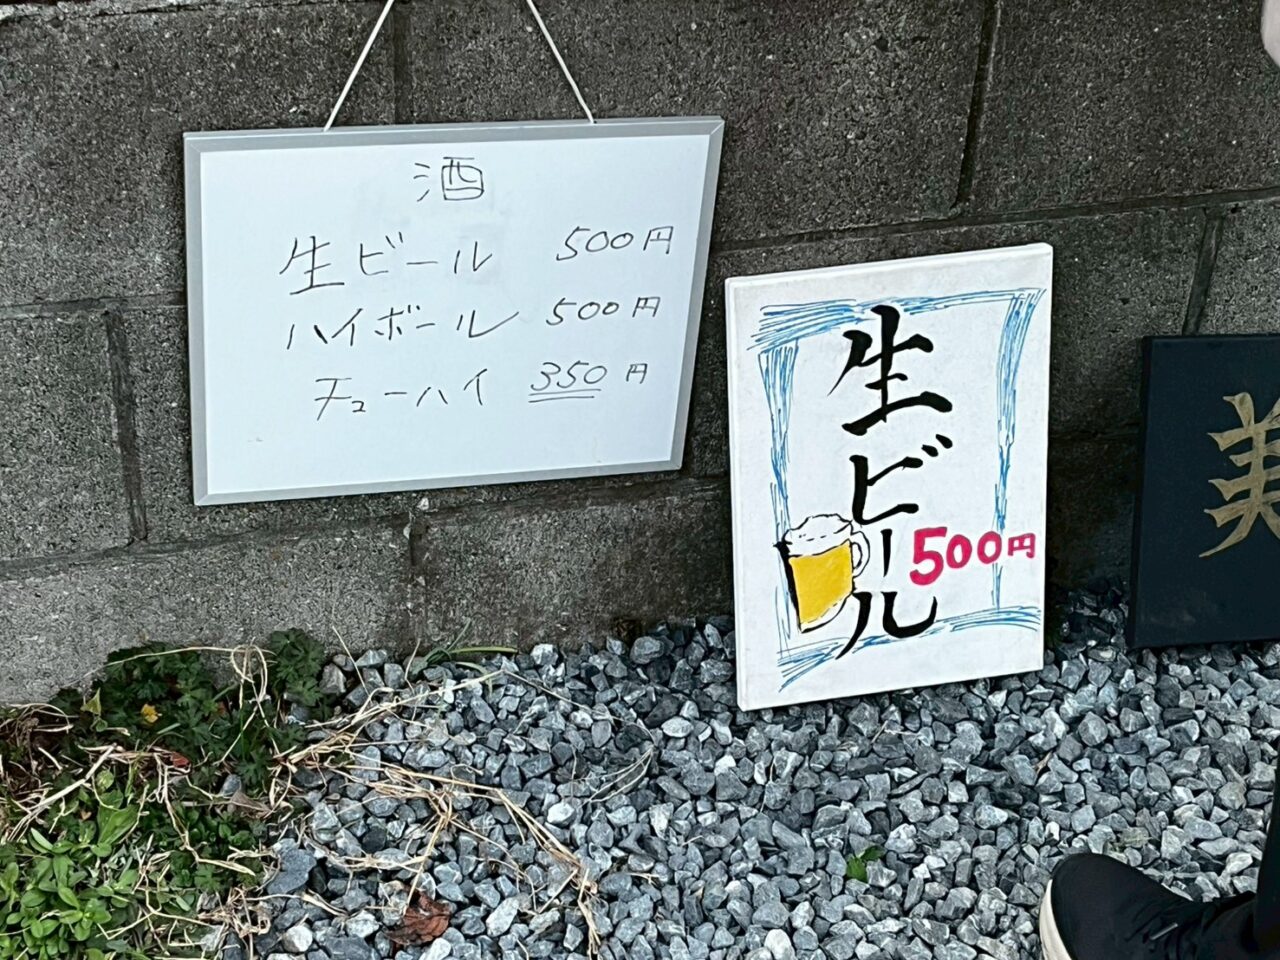 酒
生ビール 500円
ハイボール 500円
チューハイ 350円
生ビール
500円
美